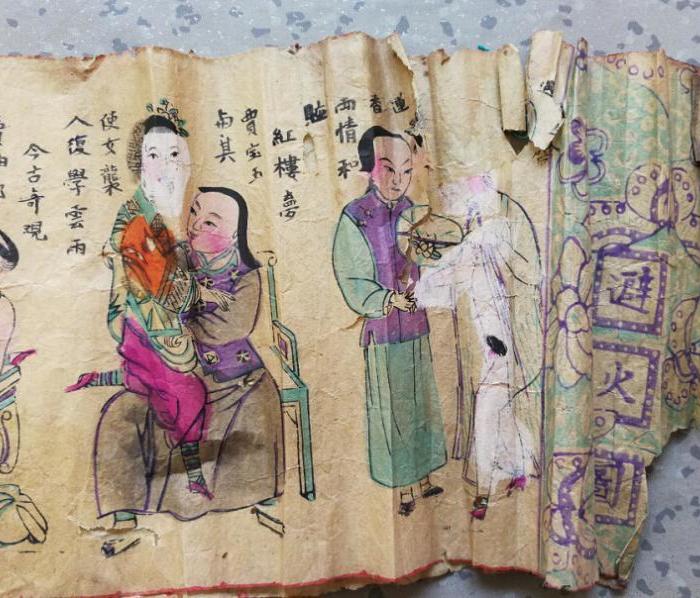 避
火
圖
蓮
香
兩情和
紅樓夢
賈宝玉
与其
使女襲
人復學雲雨
今古奇观